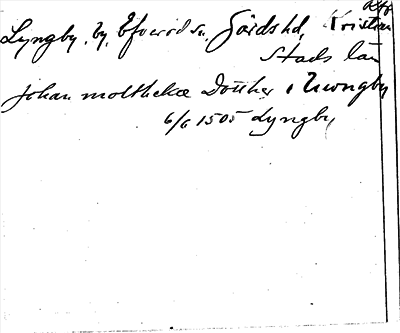 Lyngby, by, Efveröd sn, Gärds hd, Kristian
Stads län
Johan molthekæ Dotther i Liwngby
6/6 1505 Lyngby,